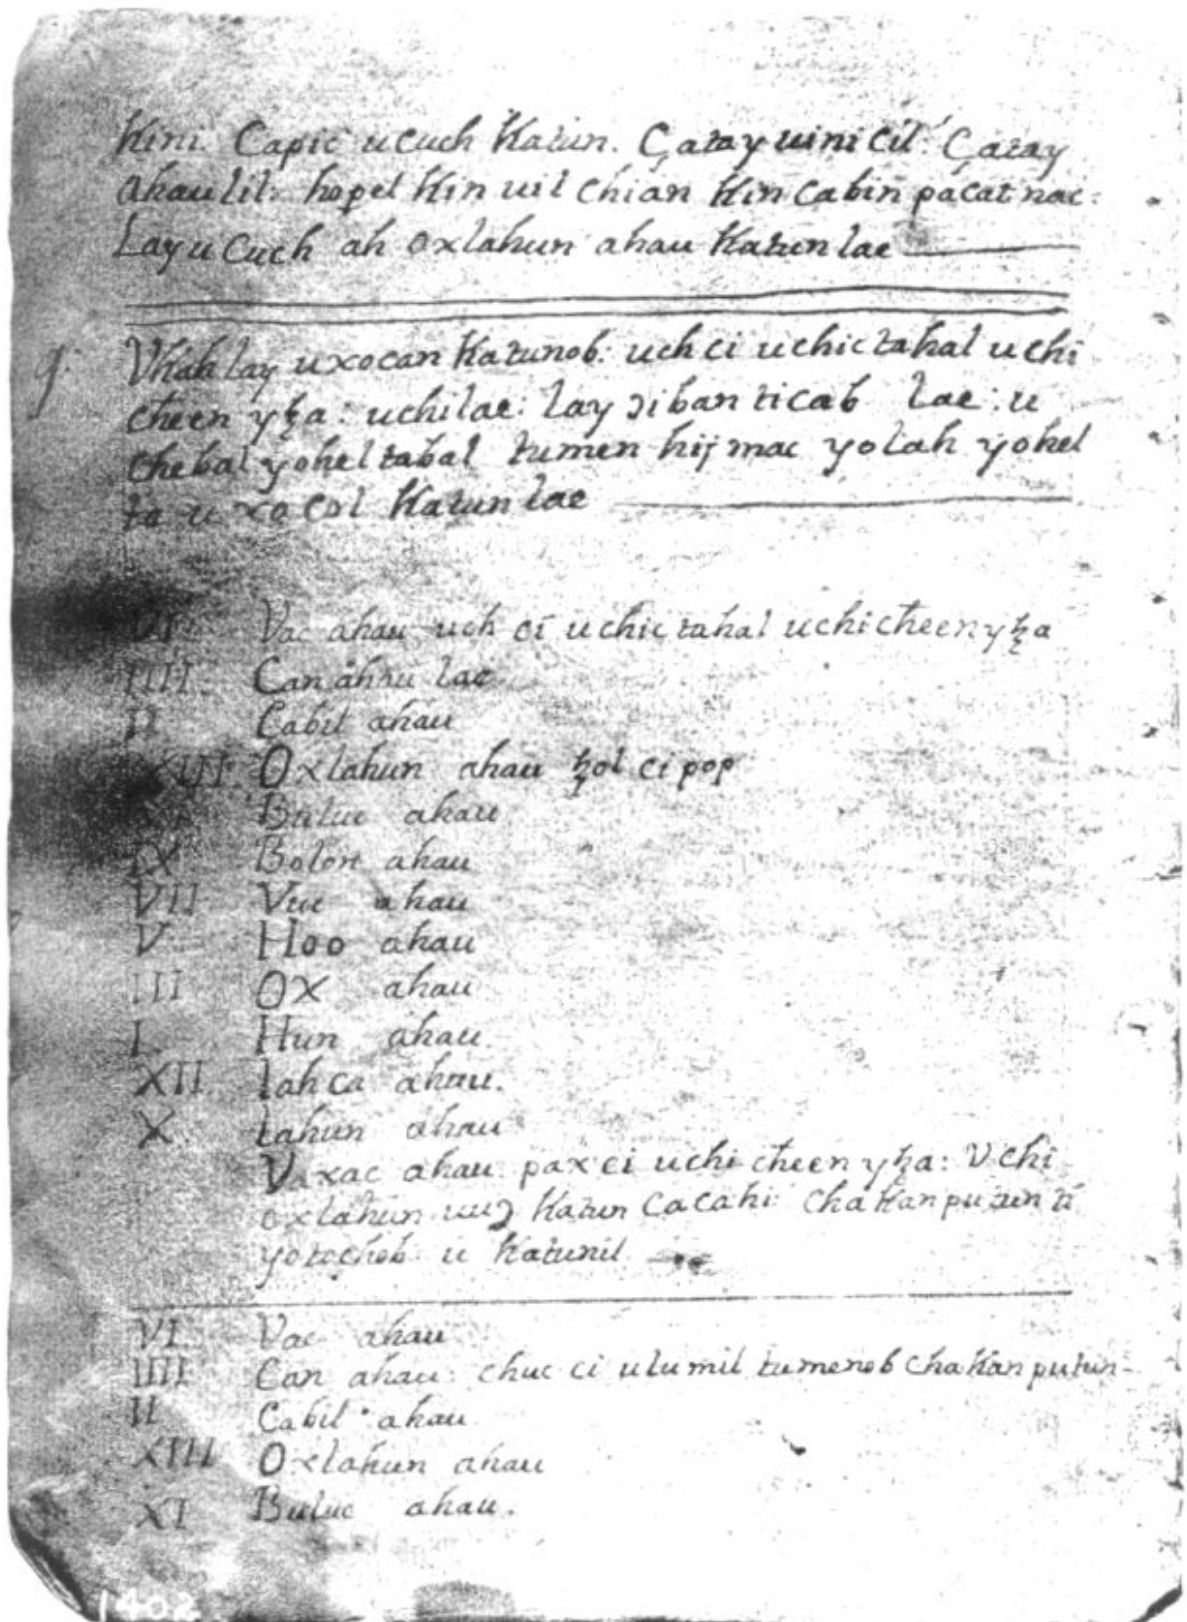 Kini. Capic ucuch Katun. Çatay uinicil: Çatay
ahaulil: hopel Kin uil chian Kin Cabin pacat nac:
Lay u Cuch ah Oxlahun ahau Katun lae
Vkahlay uxocan Katunob: uchci uchictahal uchi
cħeen ytza: uchi lae: lay ɔiban ti cab lae: u
chebal yoheltabal tumen hij mac yolah yohel
ta u xocol Katun lae
VI Vac ahau uchci uchictahal uchicħeen ytza
IIII Can ahau lae
II Cabil ahau
XIII Oxlahun ahau tzol ci pop
XI Buluc ahau
IX Bolon ahau
VII Vuc ahau
V Hoo ahau
III OX ahau
I. Hun ahau.
XII lahca ahau.
X Lahun ahau
Vaxac ahau paxci uchi cħeen ytza: Vchi
oxlahun uuɔ Katun Cacahi: chaKanputun ti
yotocheb u Katunil
VI. Vac ahau
IIII Can ahau: chuc ci ulumil tumenob chaKanputun
II Cabil ahau
XIII Oxlahun ahau
XI Buluc ahau.
1402